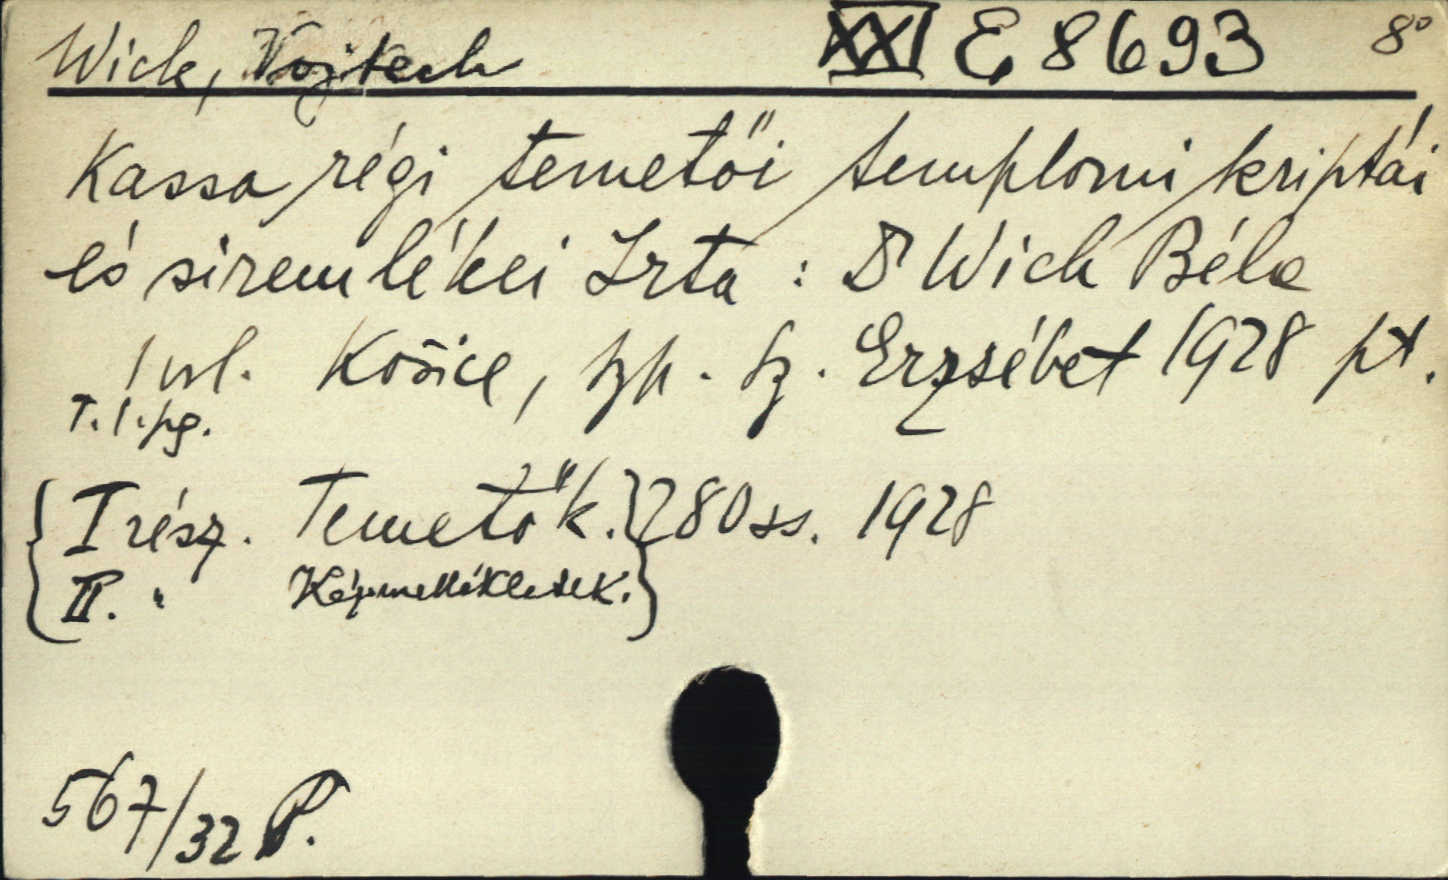 Wick, Vojtech XXI E 8693 8°
Kassa régi temetői templomi kriptái
és siremlékei Irta : Dr Wick Béla
1 vol. Košice, Sz. Erzsébet 1928 pt.
T. 1. pg.
I rész. Temetők. 280 ss. 1928
II. " Képmellékletek.
567/32 P.